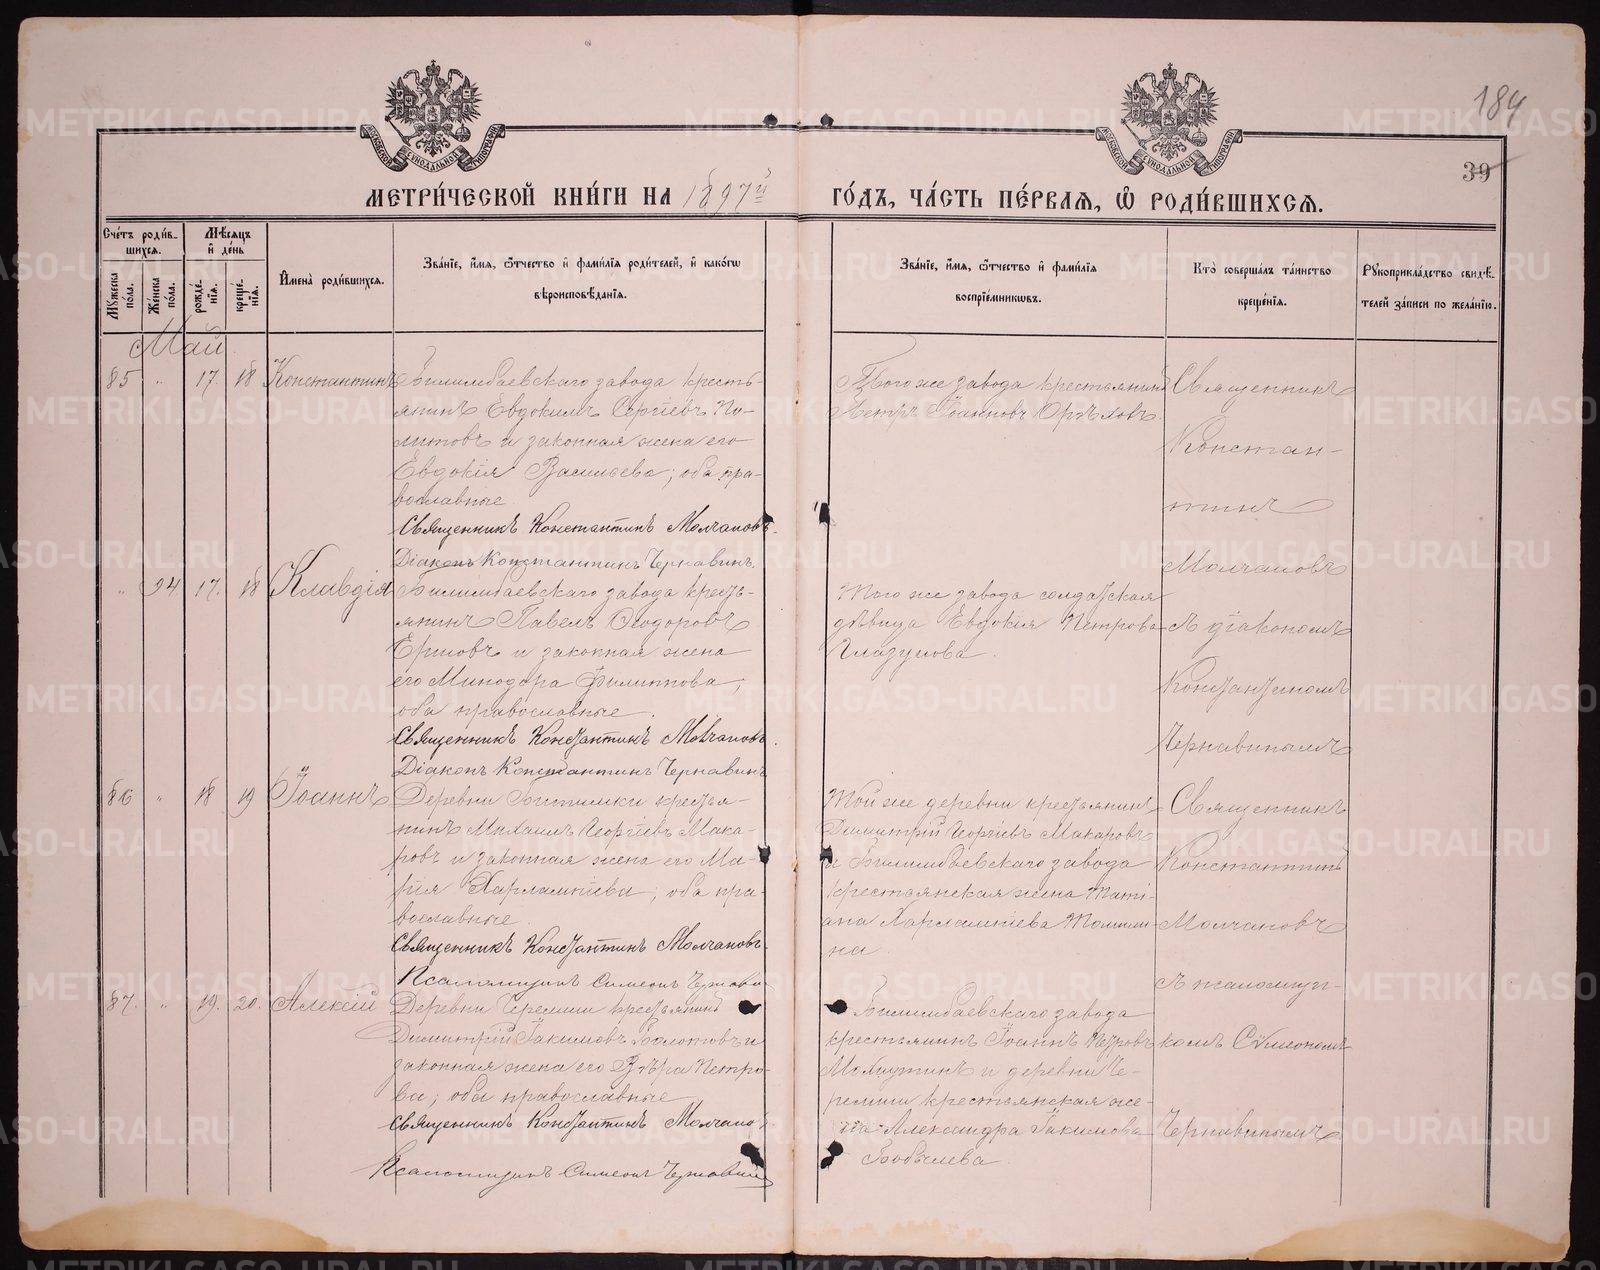 184
39
МЕТРИ́ЧЕСКОЙ КНИ́ГИ НА 1897й ГО́ДЪ, ЧА́СТЬ ПЕ́РВАѦ, Ѿ РОДИ́ВШИХСѦ.
Сче́тъ роди́в-
шихсѧ.
Мꙋжеска по́ла.
Же́нска по́ла.
Мѣ́сѧцъ
и҆ де́нь
рожде́-
нїѧ.
креще́-
нїѧ.
И҆мена̀ роди́вшихсѧ.
Зва́нїе, и҆́мѧ, ѻ҆́тчество и҆ фами́лїѧ роди́телей, и҆ како́гѡ
вѣроисповѣ́данїѧ.
Зва́нїе, и҆́мѧ, ѻ҆́тчество и҆ фами́лїѧ
воспрїе́мникѡвъ.
Кто̀ соверша́лъ та́инство
креще́нїѧ.
Рꙋкоприкла́дство свидѣ́-
телей за́писи по жела́нїю.
Май
85 " 17. 18 Константинъ
Билимбаевскаго завода кресть-
янинъ Евдокимъ Сергіевъ По-
литовъ и законная жена его
Евдокія Васильева; оба пра-
вославные
Священникъ Константинъ Молчановъ.
Діаконъ Константинъ Чернавинъ.
Того же завода крестьянинъ
Петръ Іоанновъ Орѣловъ.
Священникъ
Констан-
тинъ
Молчановъ
" 94 17. 18 Клавдія
Билимбаевскаго завода кресть-
янинъ Павелъ Ѳеодоровъ
Ермовъ и законная жена
его Минодора Филиппова;
оба православные.
Священникъ Константинъ Молчановъ.
Діаконъ Константинъ Чернавинъ
Того же завода солдатская
дѣвица Евдокія Петрова
Глазунова.
съ діакономъ
Константиномъ
Чернавинымъ
86 " 18 19 Іоаннъ
Деревни Битимки крестья-
нинъ Михаилъ Георгіевъ Мака-
ровъ и законная жена его Ма-
рія Харлампіева; оба пра-
вославные.
Священникъ Константинъ Молчановъ.
Псаломщикъ Симеонъ
Той же деревни крестьянинъ
Димитрій Георгіевъ Макаровъ
и Билимбаевскаго завода
крестьянская жена Тати-
ана Харлампіева Томили-
на
Священникъ
Константинъ
Молчановъ
съ псаломщи-
комъ Сѵмеономъ
Чернавинымъ
87. " 19. 20. Алексій
Деревни Черемши крестьянинъ
Димитрій Іакимовъ Болотовъ и
законная жена его Вѣра Петро-
ва; оба православные
Священникъ Константинъ Молчановъ
Псаломщикъ Симеонъ
Билимбаевскаго завода
крестьянинъ Іоаннъ Петровъ
и деревни Че-
ремши крестьянская же-
на Александра Іакимова
Бобылева.